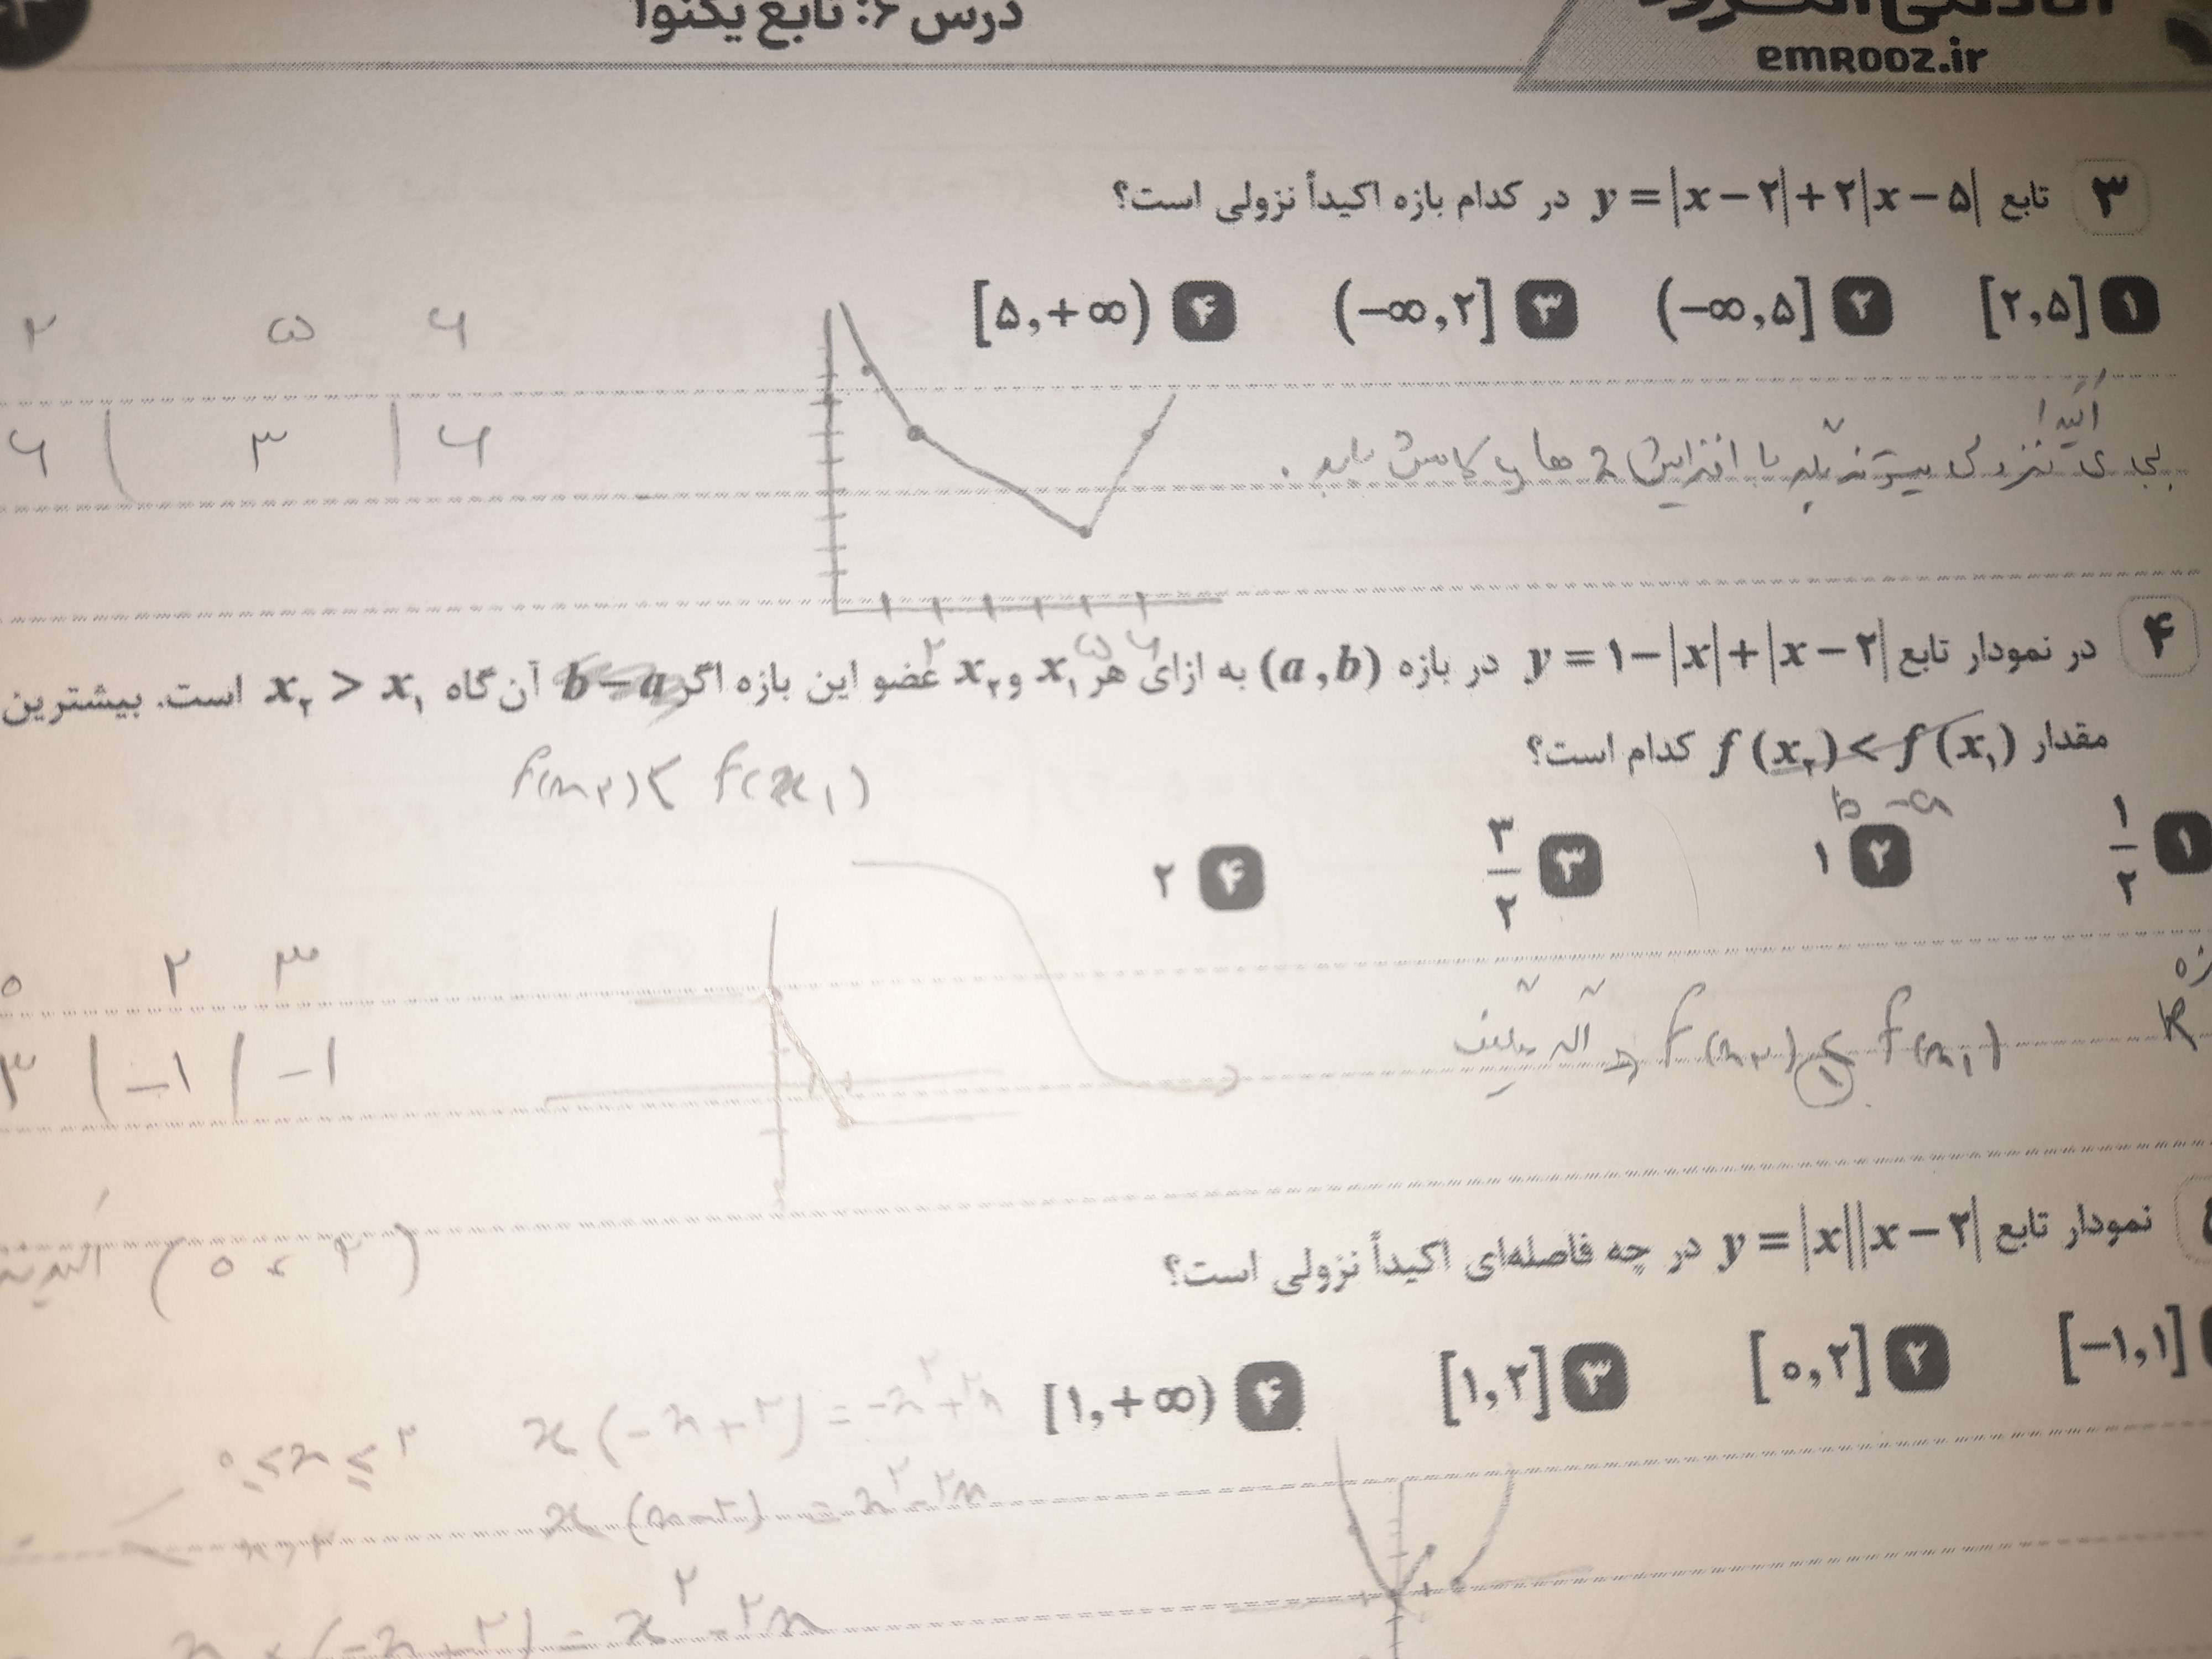 درس ۶: تابع یکنوا
emrooz.ir
۳ تابع y = |x - ۲| + ۲|x - ۵| در کدام بازه اکیداً نزولی است؟
۱ [۲, ۵] ۲ (-∞, ۵] ۳ (-∞, ۲] ۴ [۵, +∞)
۲ ۵ ۶
۶ | ۳ | ۶
اکیدا
نزولی با افزایش x ها y کاهش یابد.
۲ ۵ ۶
۴ در نمودار تابع y = ۱ - |x| + |x - ۲| در بازه (a, b) به ازای هر x₁ و x₂ عضو این بازه اگر b - a آن‌گاه x₂ > x₁ است. بیشترین
مقدار f(x₂) < f(x₁) کدام است؟
f(x₂) < f(x₁)
b - a
۱ ۱/۲ ۲ ۱ ۳ ۳/۲ ۴ ۲
۰ ۲ ۳
۳ | -۱ | -۱
f(x₂) < f(x₁)
(۰ , ۲)
نمودار تابع y = |x||x - ۲| در چه فاصله‌ای اکیداً نزولی است؟
[-۱, ۱] ۲ [۰, ۲] ۳ [۱, ۲] ۴ [۱, +∞)
۰ ≤ x ≤ ۲ x(-x + ۲) = -x² + ۲x
x(x - ۲) = x² - ۲x
(-x + ۲) = x² - ۲x